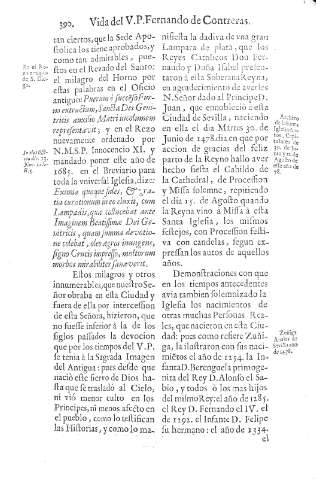 390. Vida del V.P. Fernando de Contreras.
tan ciertos, que la Sede Apo-
stolica los tiene aprobados, y
como tan admirables, pues-
tos en el Rezado del Santo:
el milagro del Horno por
estas palabras en el Oficio
antiguo: Puerum è succenso For-
no extractum, sancta Dei Geni-
tricis auxilio Matri incolumem
repræsentavit; y en el Rezo
nuevamente ordenado por
N.M.S.P. Innocencio XI. y
mandado poner este año de
1685. en el Breviario para
toda la universal Iglesia, dize:
Eximia quoque fides, & gra-
tia curationum in eo eluxit, cum
Lampadis, quæ collucebat ante
Imaginem Beatissimæ Dei Ge-
nitricis, quam summa devotio-
ne colebat, oleo ægros inungens,
signo Crucis impresso, multorum
morbos mirabiliter sanaverit.
Estos milagros y otros
innumerables, que nuestro Se-
ñor obraba en esta Ciudad y
fuera de ella por intercession
de esta Señora, hizieron, que
no fuesse inferior à la de los
siglos passados la devocion
que por los tiempos del V.P.
se tenia à la Sagrada Imagen
del Antigua: pues desde que
naciò este siervo de Dios has-
ta que se trasladò al Cielo,
ni viò menor culto en los
Principes, ni menos afecto en
el pueblo, como lo testifican
las Historias, y como lo ma-
nifiesta la dadiva de vna gran
Lampara de plata, que los
Reyes Catholicos Don Fer-
nando y Doña Isabel presen-
taron à esta Soberana Reyna,
en agradecimiento de averles
N. Señor dado al Principe D.
Juan, que ennobleciò à esta
Ciudad de Sevilla, naciendo
en ella el dia Martes 30. de
Junio de 1478. dia en que por
accion de gracias del feliz
parto de la Reyna hallo aver
hecho fiesta el Cabildo de
la Cathedral, de Procession
y Missa solemne, repitiendo
el dia 15. de Agosto quando
la Reyna vino à Missa à esta
Santa Iglesia, los mismos
festejos, con Procession festi-
va con candelas, segun ex-
pressan los autos de aquellos
años.
Demostraciones con que
en los tiempos antecedentes
avia tambien solemnizado la
Iglesia los nacimientos de
otras muchas Personas Rea-
les, que nacieron en esta Ciu-
dad: pues como refiere Zuñi-
ga, la ilustraron con sus naci-
mientos el año de 1254. la In-
fanta D. Berenguela primoge-
nita del Rey D. Alonso el Sa-
bio, y todos lo mas hijos
del mismo Rey: el año de 1285.
el Rey D. Fernando el IV. el
de 1292. el Infante D. Felipe
su hermano: el año de 1334.
el